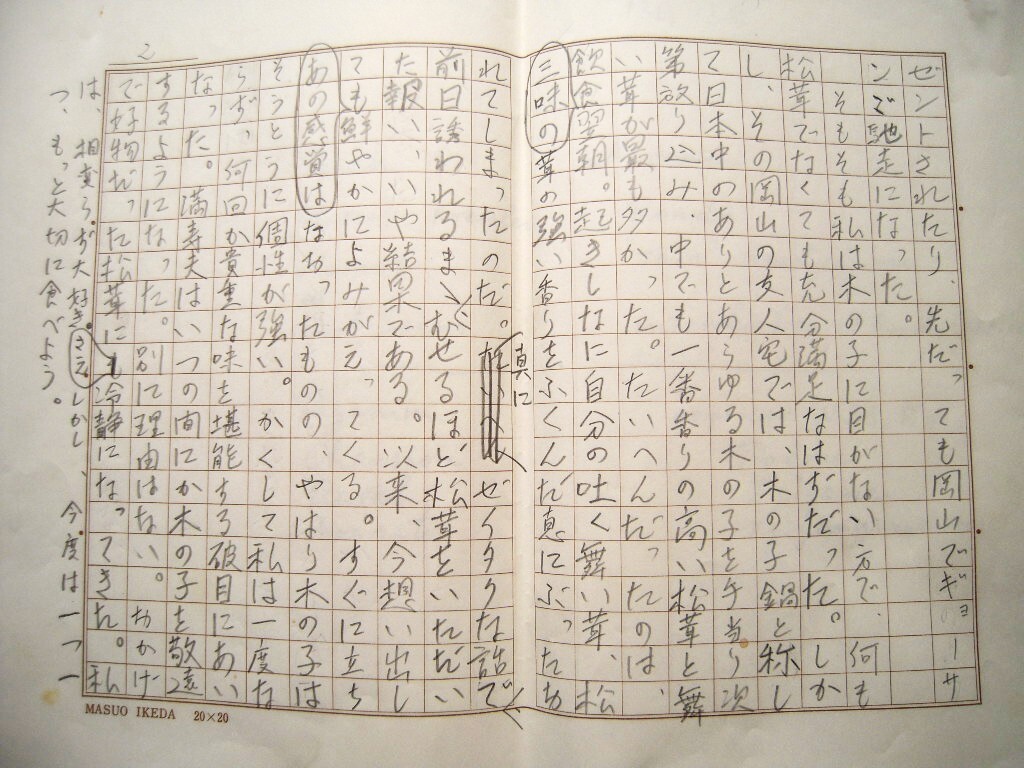 ゼントされたり、先だっても岡山でギョーサ
ンで馳走になった。
そもそも私は木の子に目がない方で、何も
松茸でなくても充分満足なはずだった。しか
し、その岡山の友人宅では、木の子鍋と称し
て日本中のありとあらゆる木の子を手当り次
第放り込み、中でも一番香りの高い松茸と舞
い茸が最も多かった。たいへんだったのは、
飲食翌朝。起きしなに自分の吐く舞い茸、松
三味の茸の強い香りをふくんだ息にぶったお
真に
れてしまったのだ。ゼイタクな話で
前日誘われるまゝむせるほど松茸をいただい
た報い、いや結果である。以来、今想い出し
ても鮮やかによみがえってくる。すぐに立ち
あの感覚はなおったものの、やはり木の子は
そうとうに個性が強い。かくして私は一度な
らず、何回か貴重な味を堪能する破目にあい
なった。満寿夫はいつの間にか木の子を敬遠
するようになった。別に理由はない。おかげ
で好物だった松茸に冷静になってきた。私
は、相変らず大好き。さえしかし、今度は一つ一
つ、もっと大切に食べよう。
2
MASUO IKEDA 20×20